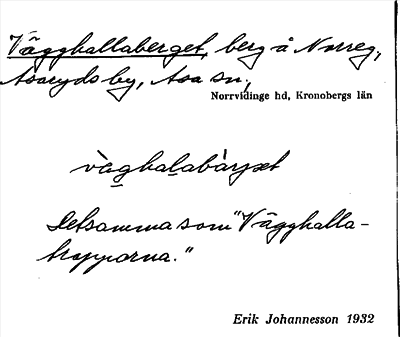 Vägghallaberget, berg å Norreg,
Asaryds by, Asa sn;
Norrvidinge hd, Kronobergs län
vàghalabàrȷət
Detsamma som "Vägghalla-
trapporna."
Erik Johannesson 1932